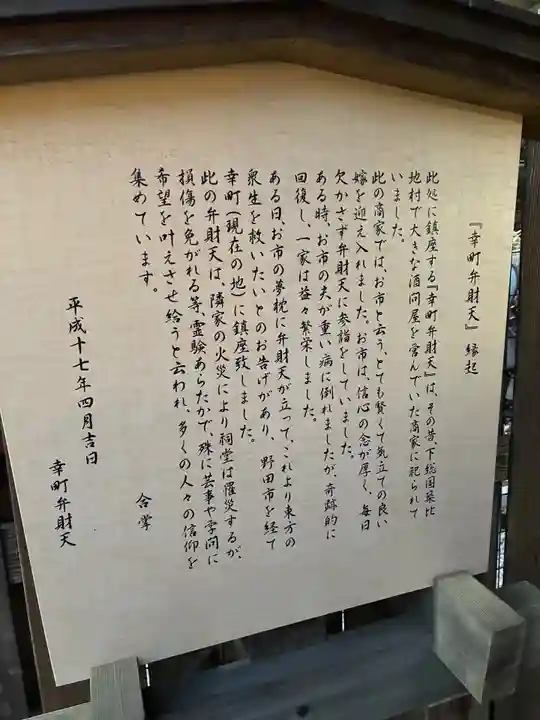 『幸町弁財天』縁起
此処に鎮座する『幸町弁財天』は、その昔、下総国葛比
地村で大きな酒問屋を営んでいた商家に祀られて
いました。
此の商家では、お市と云う、とても賢くて気立ての良い
嫁を迎え入れました。お市は、信心の念が厚く、毎日
欠かさず弁財天に参詣をしていました。
ある時、お市の夫が重い病に倒れましたが、奇跡的に
回復し、一家は益々繁栄しました。
ある日、お市の夢枕に弁財天が立って、これより東方の
衆生を救いたいとのお告げがあり、野田市を経て
幸町(現在の地)に鎮座致しました。
此の弁財天は、隣家の火災により祠堂は罹災するが、
損傷を免がれる等、霊験あらたかで、殊に芸事や学問に
希望を叶えさせ給うと云われ、多くの人々の信仰を
集めています。
合掌
平成十七年四月吉日
幸町弁財天